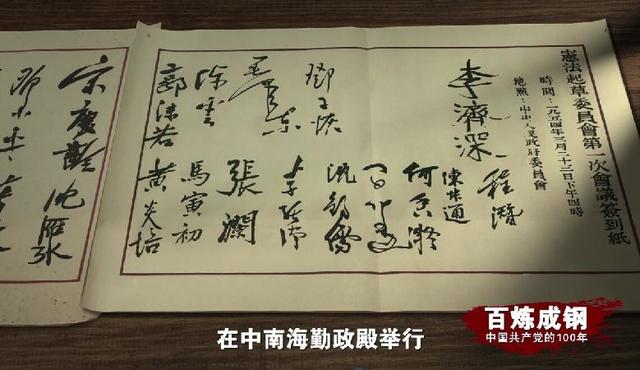 憲法起草委員會第一次會議簽到紙
時間：一九五四年三月二十三日下午四時
地點：中央人民政府委員會
程潛
李濟深
陳叔通
何香凝
鄧子恢
沈鈞儒
毛澤東
張瀾
陳雲
馬寅初
郭沫若
黃炎培
宋慶齡
沈雁冰
鄧小平
在中南海勤政殿举行
百炼成钢
中国共产党的100年